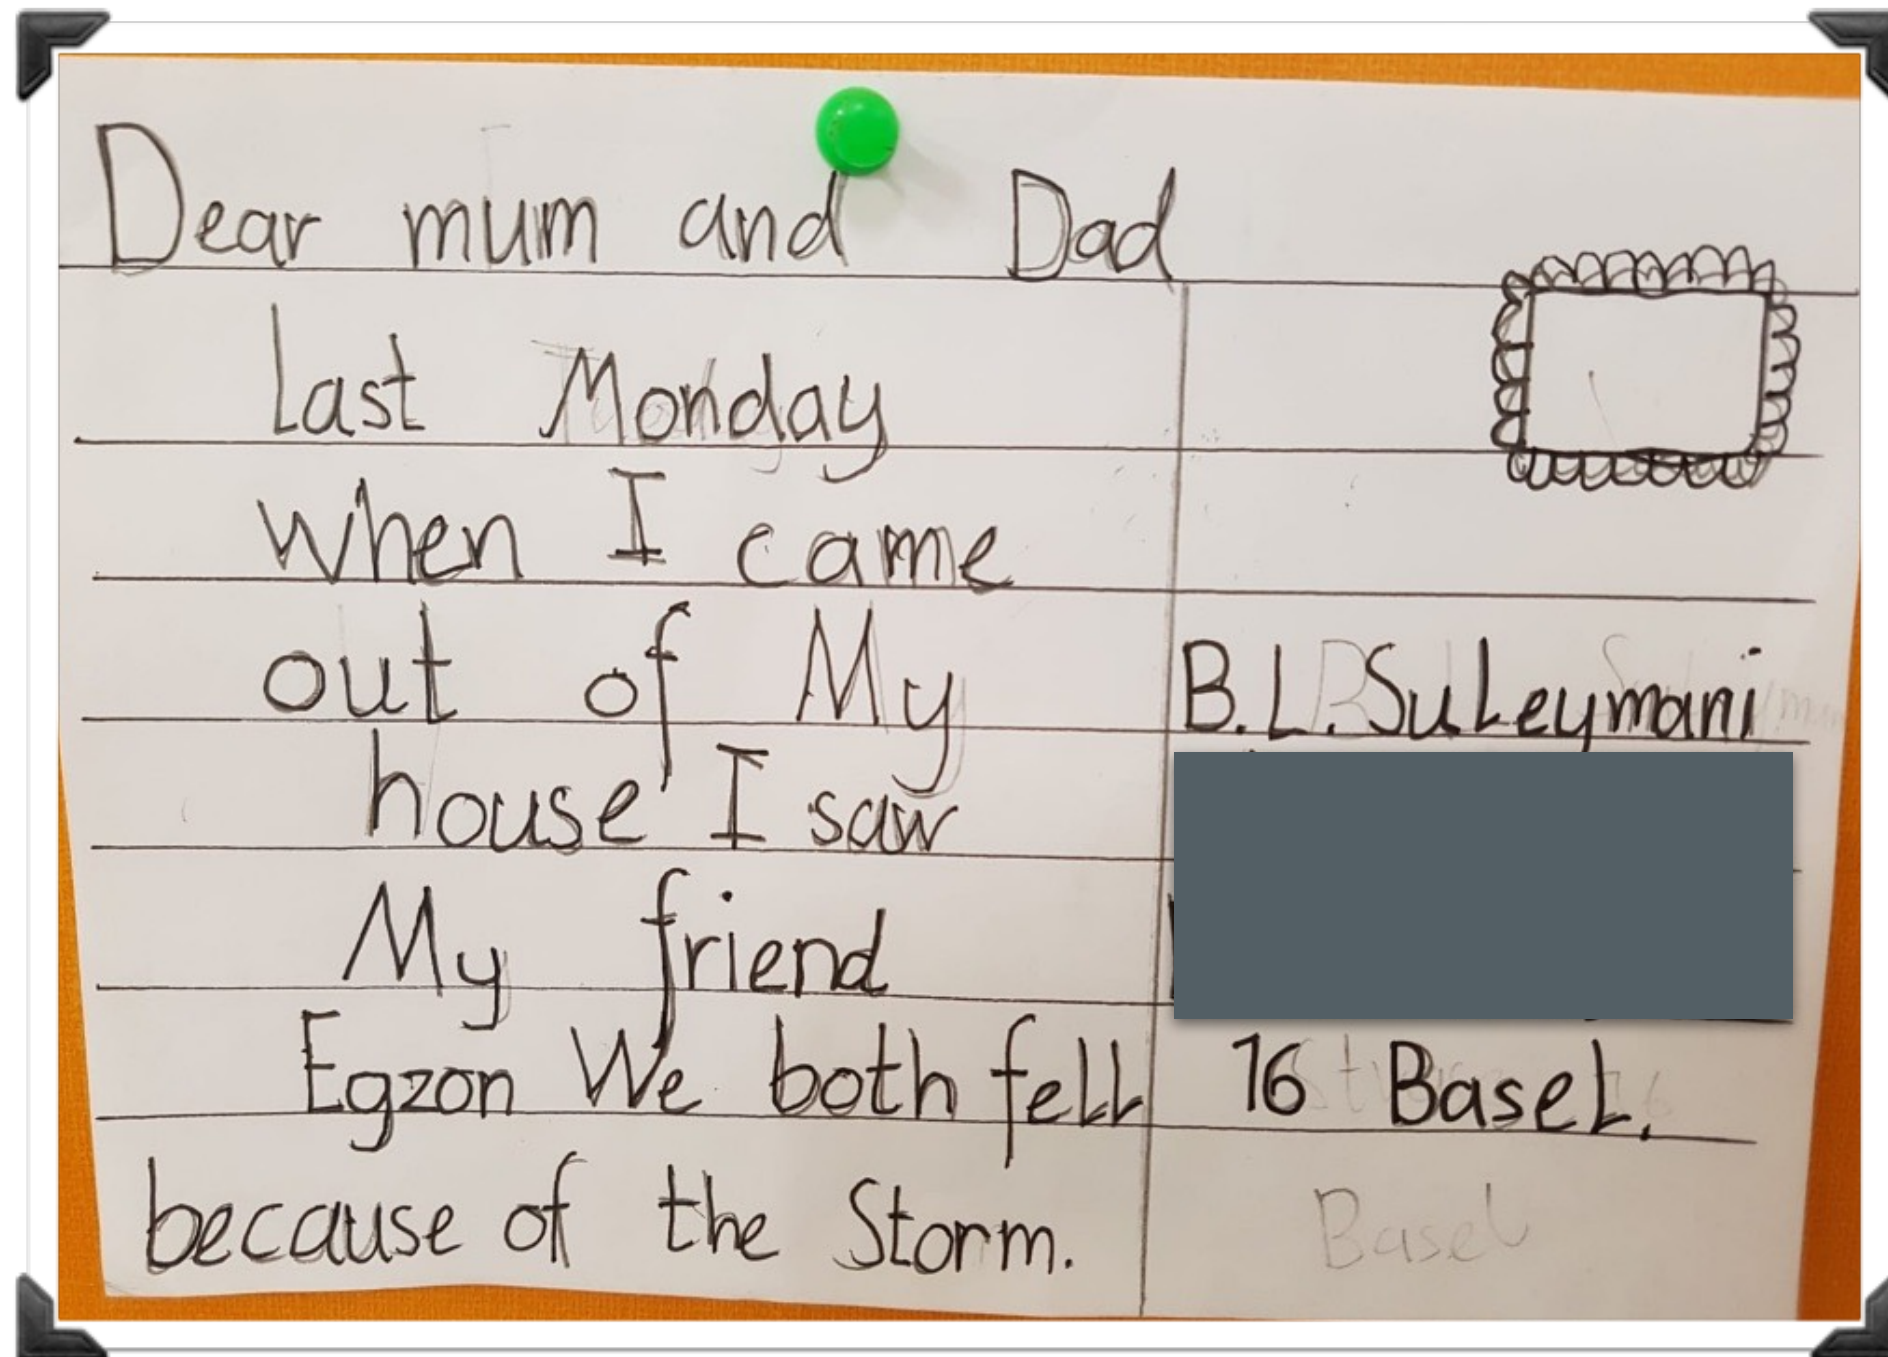 Dear mum and Dad
last Monday
when I came
out of My
house I saw
My friend
Egzon We both fell
because of the Storm.
B.L.SuLeymani
16 BaseL.
Basel